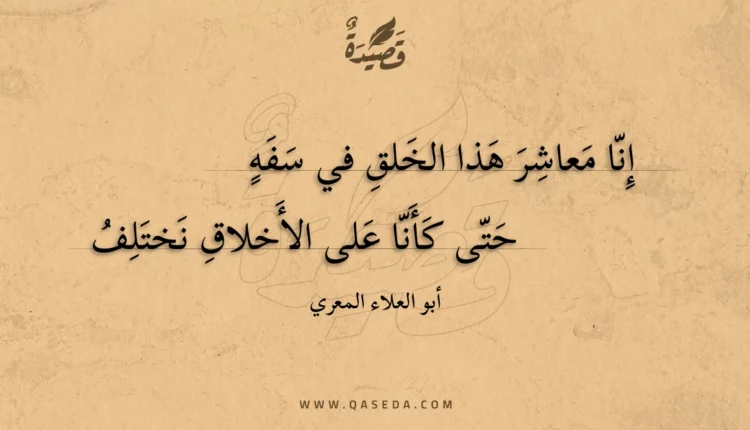 قَصِيدَةٌ
إِنّا مَعاشِرَ هَذا الخَلقِ في سَفَهٍ
حَتّى كَأَنّا عَلى الأَخلاقِ نَختَلِفُ
أبو العلاء المعري
WWW.QASEDA.COM